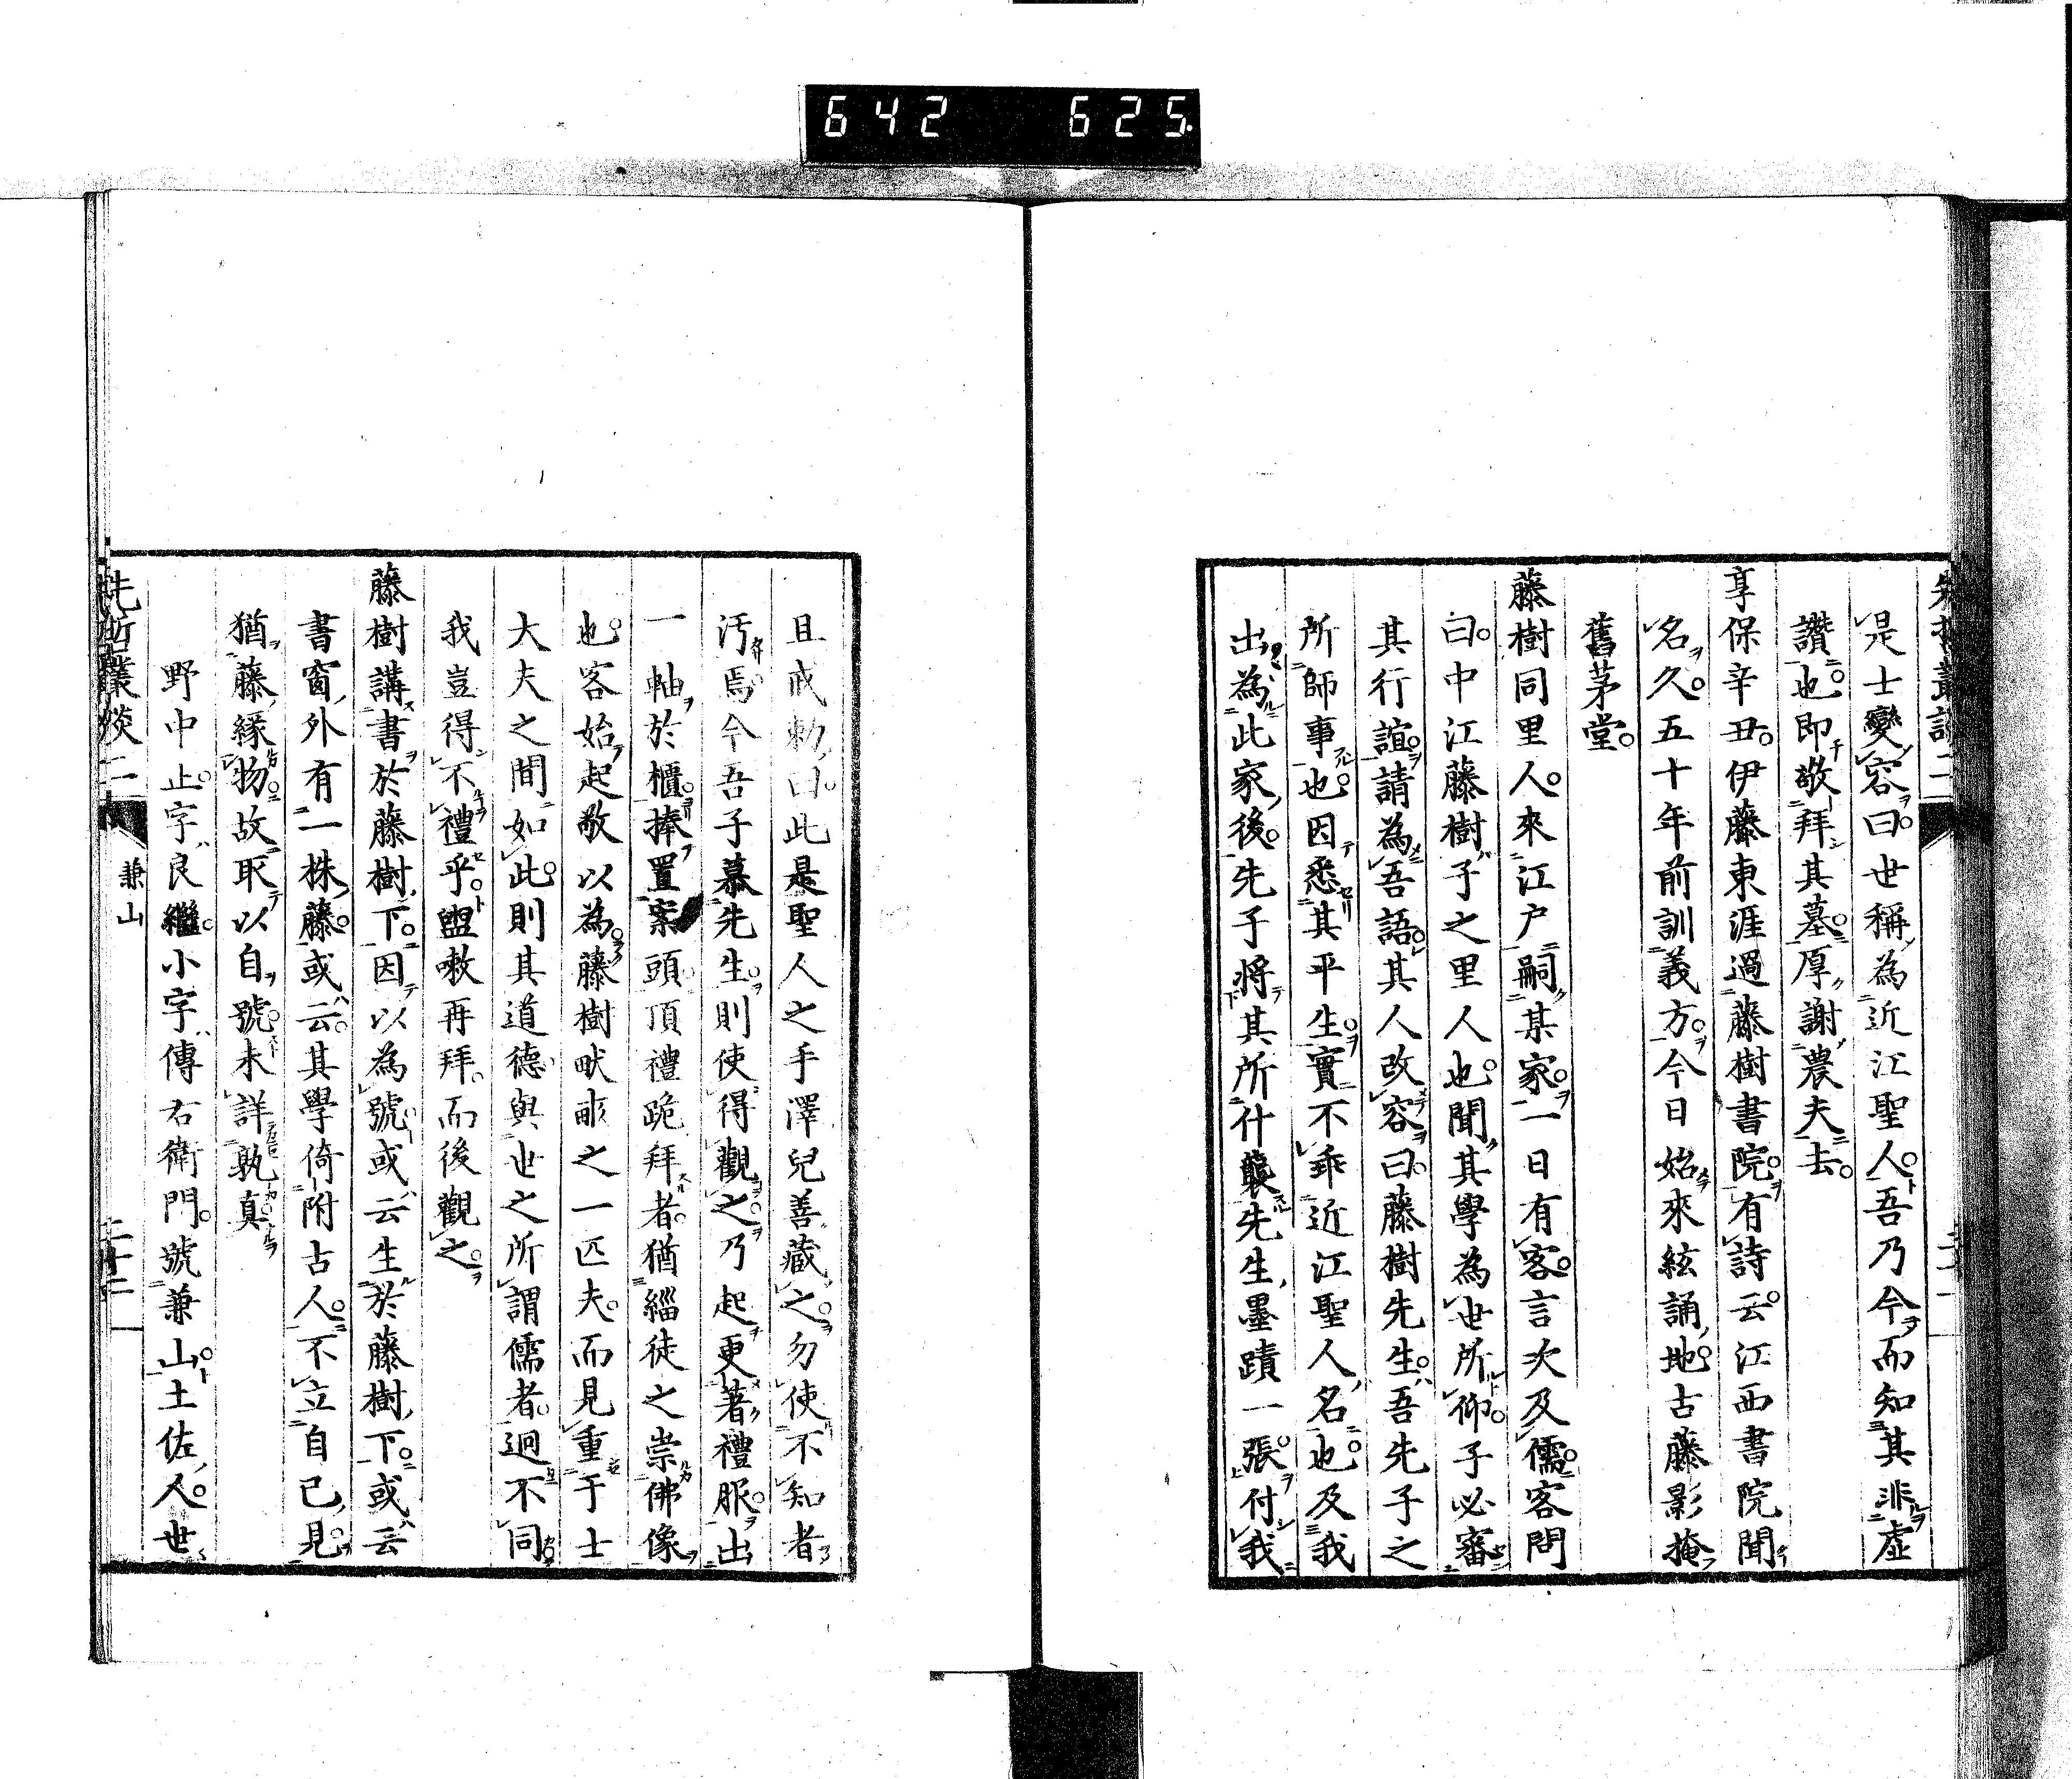 642 625
先哲叢談二 二十一
是士變容曰世稱為近江聖人吾乃今而知其非虛
讚也即敬拜其墓厚謝農夫去
享保辛丑伊藤東涯過藤樹書院有詩云江西書院聞
名久五十年前訓義方今日始來絃誦地古藤影掩
舊茅堂
藤樹同里人來江戸嗣某家一日有客言次及儒客問
曰中江藤樹子之里人也聞其學為世所仰子必審
其行誼請為吾語其人改容曰藤樹先生吾先子之
所師事也因悉其平生實不乖近江聖人名也及我
出為此家後先子將其所什襲先生墨蹟一張付我
且戒勅曰此是聖人之手澤兒善藏之勿使不知者
汚焉今吾子慕先生則使得觀之乃起更著禮服出
一軸於櫃捧置案頭頂禮跪拜者猶緇徒之崇佛像
也客始起敬以為藤樹畎畝之一匹夫而見重于士
大夫之間如此則其道德與世之所謂儒者迥不同
我豈得不禮乎盥嗽再拜而後觀之
藤樹講書於藤樹下因以為號或云生於藤樹下或云
書窗外有一株藤或云其學倚附古人不立自己見
猶藤緣物故取以自號未詳孰真
野中止字良繼小字傳右衛門號兼山土佐人世
先哲叢談二 兼山 二十二